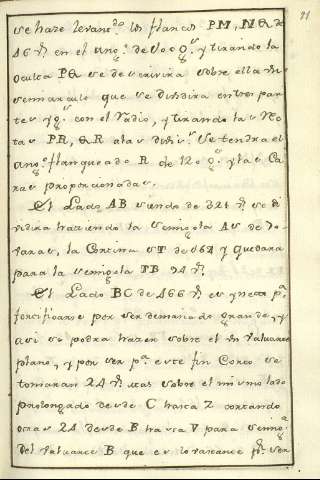 91
se haze levan.do los flancos PM, NQ, de
16 v.s en el ang.o de 100 g.s y tirando la
oculta PQ se descrivira sobre ella un
semicirculo que se dividira en tres par
tes yg.s con el Radio, y tirando las Rec
tas PR, QR a las divi.s se tendra el
ang.o flanqueado R de 120 g.s y las Ca
ras proporcionadas.
El Lado AB siendo de 321 v.s se di
vidira haziendo la semigola AS de
varas, la Cortina ST de 167 y quedara
para la semigola TB 74 v.s
El Lado BC de 466 v.s es
fortificarse por ser demasiado grande, y
asi se podra hazer sobre el un Valuarte
plano, y por ser p.a este fin Corto se
tomaran 24 v.s mas sobre el mismo lado
prolongado desde C hasta Z contando
otras 24 desde B hasta V para semig.a
del Valuarte B que es lo restante p.r ser